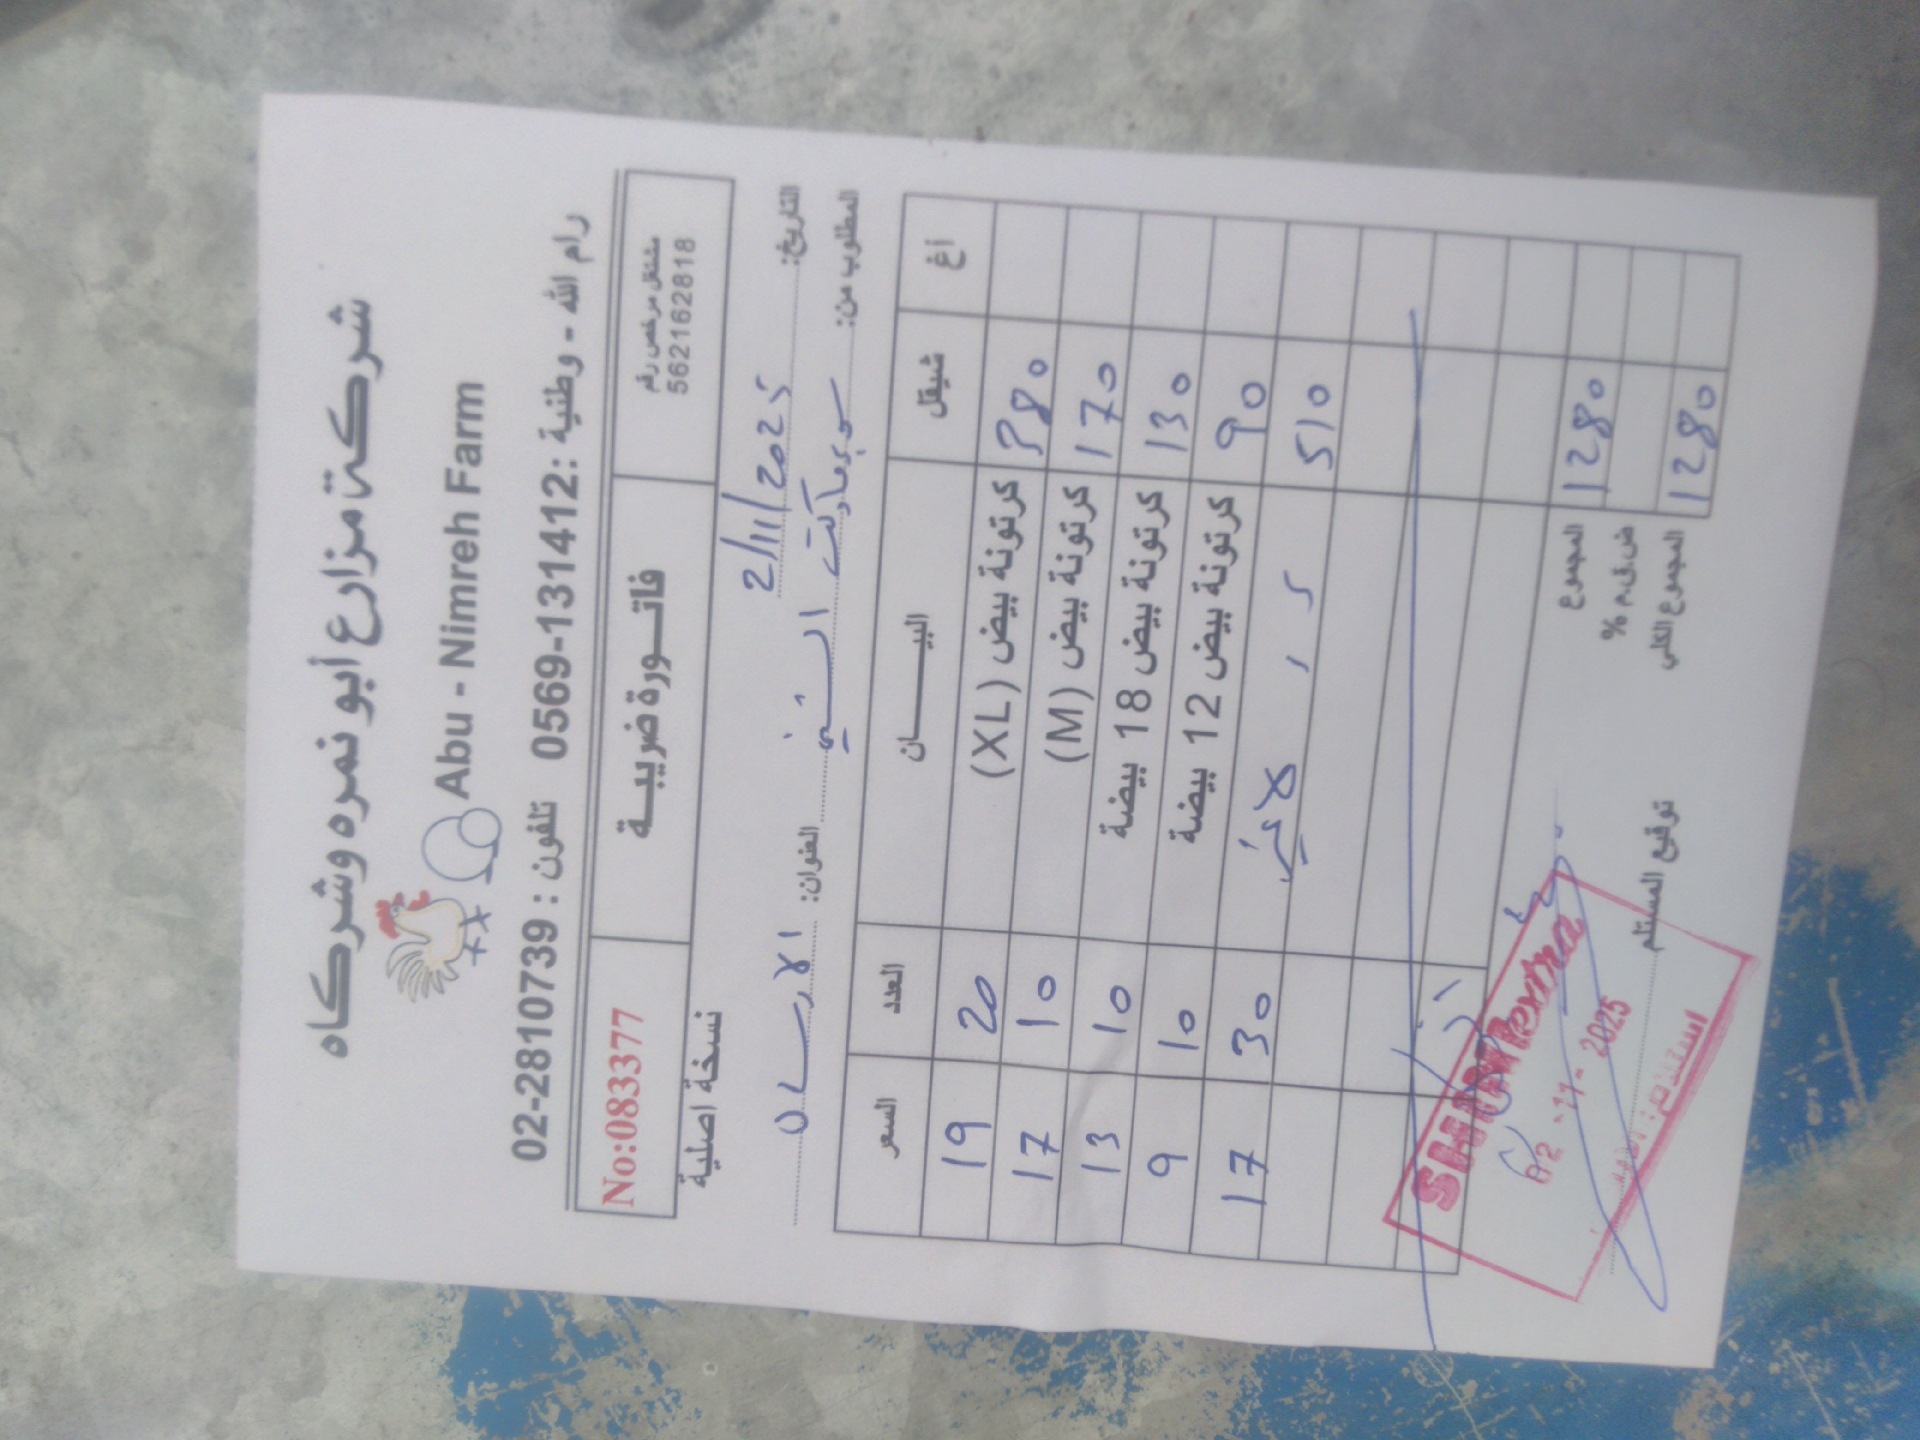 شركة مزارع أبو نمره وشركاه
Abu - Nimreh Farm
رام الله - وطنية : 0569-131412 تلفون : 02-2810739
مشتغل مرخص رقم
562162818
فاتــورة ضريبـــة
No:083377
نسخة اصلية
التاريخ: 2/11/2025
المطلوب من: سوبرماركت العنوان: الارسال
السعر العدد البيـــــان شيقل اغ
19 20 كرتونة بيض (XL) 380
17 10 كرتونة بيض (M) 170
13 10 كرتونة بيض 18 بيضة 130
9 10 كرتونة بيض 12 بيضة 90
17 30 510
المجموع 1280
ض.ق.م %
المجموع الكلي 1280
توقيع المستلم
extra
02-11-2025